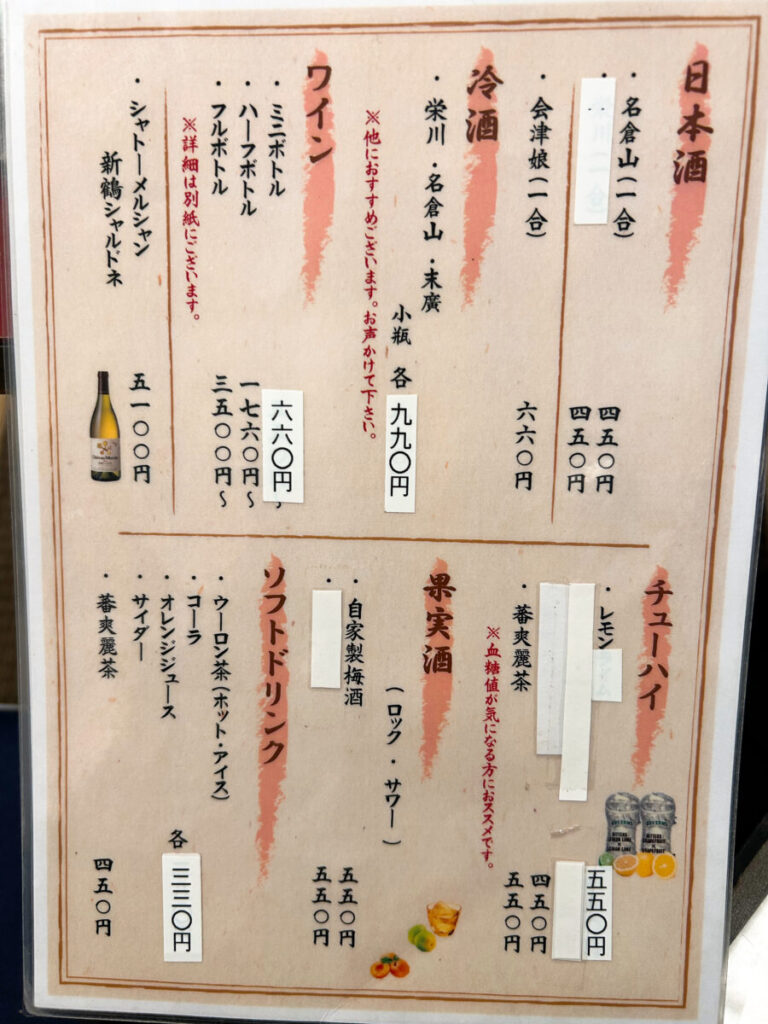 日本酒
・名倉山(一合)
四五〇円
四五〇円
・会津娘(一合)
六六〇円
冷酒
・栄川・名倉山・末廣
小瓶 各 九九〇円
※他におすすめございます。お声かけて下さい。
ワイン
・ミニボトル
六六〇円~
・ハーフボトル
一七六〇円~
・フルボトル
三五〇〇円~
※詳細は別紙にございます。
・シャトーメルシャン
新鶴シャルドネ
五一〇〇円
チューハイ
・レモン
五五〇円
四五〇円
・蕃爽麗茶
五五〇円
※血糖値が気になる方におススメです。
果実酒
(ロック・サワー)
・自家製梅酒
五五〇円
・
五五〇円
ソフトドリンク
・ウーロン茶(ホット・アイス)
・コーラ
・オレンジジュース
・サイダー
各 三三〇円
・蕃爽麗茶
四五〇円